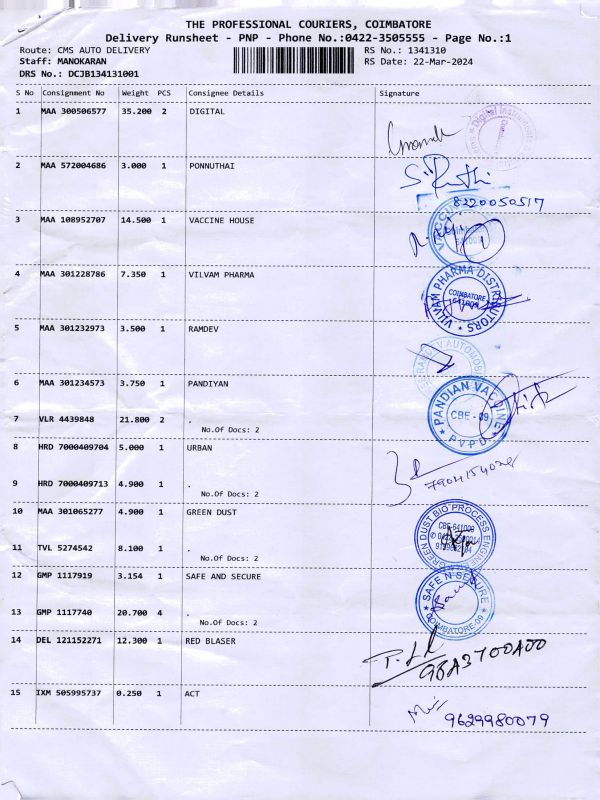 THE PROFESSIONAL COURIERS, COIMBATORE
Delivery Runsheet - PNP - Phone No.:0422-3505555 - Page No.:1
Route: CMS AUTO DELIVERY RS No.: 1341310
Staff: MANOKARAN RS Date: 22-Mar-2024
DRS No.: DCJB134131001
S No Consignment No Weight PCS Consignee Details Signature
1 MAA 300506577 35.200 2 DIGITAL
2 MAA 572004686 3.000 1 PONNUTHAI
8220050517
3 MAA 108952707 14.500 1 VACCINE HOUSE
4 MAA 301228786 7.350 1 VILVAM PHARMA
VILVAM PHARMA DISTRIBUTORS
COIMBATORE
5 MAA 301232973 3.500 1 RAMDEV
6 MAA 301234573 3.750 1 PANDIYAN
PANDIAN VACCINE
CBE - 09
PVPD
7 VLR 4439848 21.800 2 .
No.Of Docs: 2
8 HRD 7000409704 5.000 1 URBAN
9 HRD 7000409713 4.900 1 .
No.Of Docs: 2
10 MAA 301065277 4.900 1 GREEN DUST
GREEN DUST BIO PROCESS
11 TVL 5274542 8.100 1 .
No.Of Docs: 2
12 GMP 1117919 3.154 1 SAFE AND SECURE
SAFE N SECURE
COIMBATORE-09
13 GMP 1117740 20.700 4 .
No.Of Docs: 2
14 DEL 121152271 12.300 1 RED BLASER
15 IXM 505995737 0.250 1 ACT
9629980079